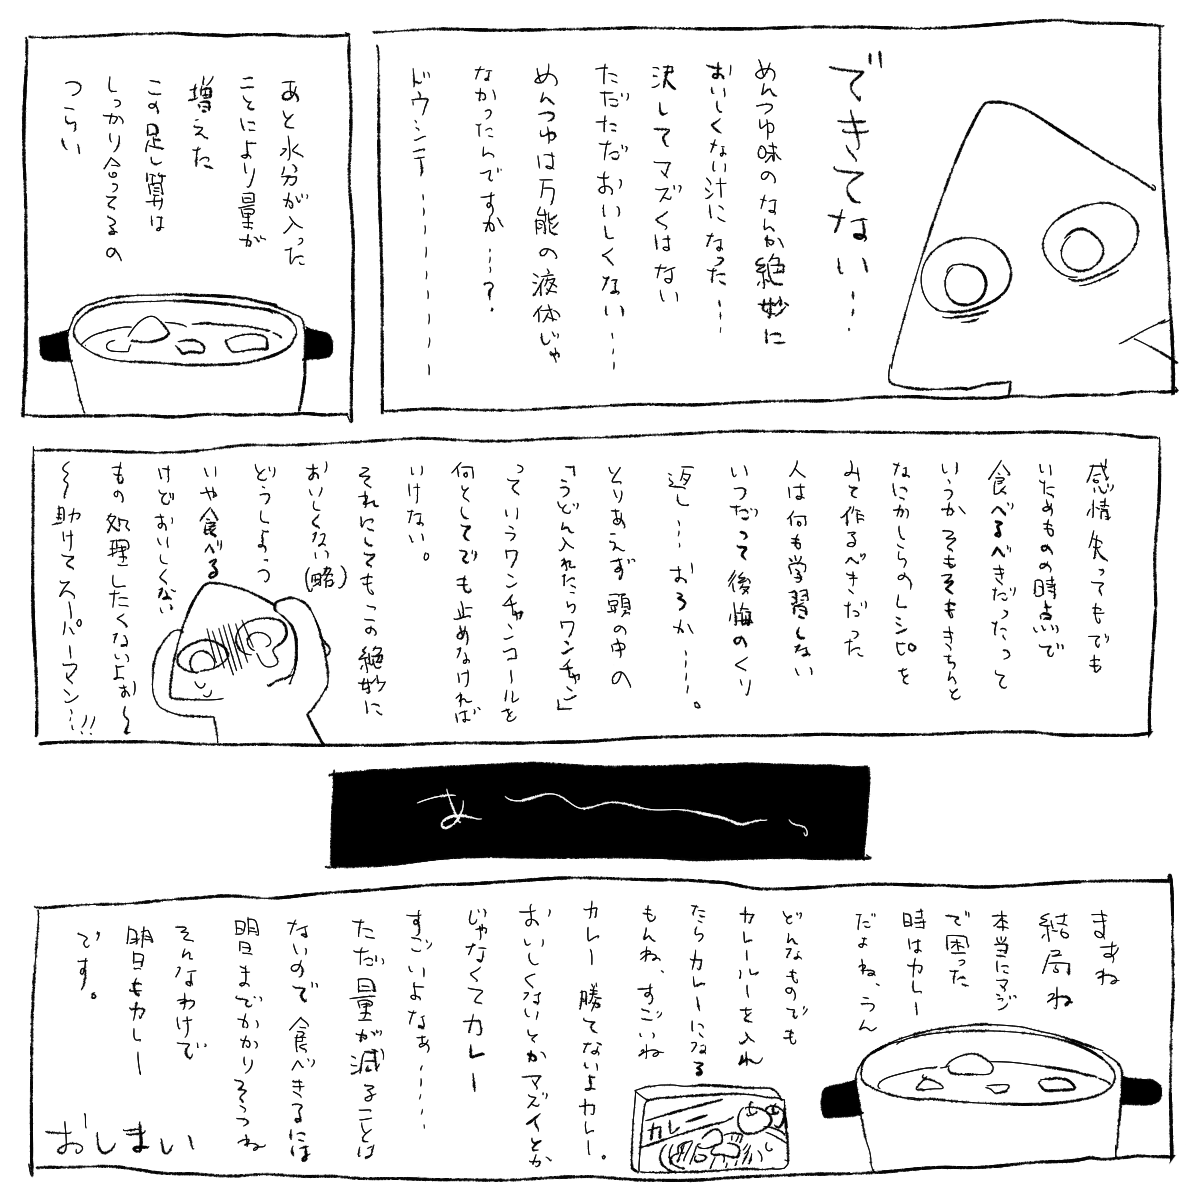 できてない…
めんつゆ味のなんか絶妙に
おいしくない汁になった…
決してマズくはない
ただただおいしくない…
めんつゆは万能の液体じゃ
なかったんですか…？
ドウシテ…………
あと水分が入った
ことにより量が
増えた
この足し算は
しっかり合ってるの
つらい
感情失ってもでも
いためものの時点で
食べるべきだったって
いうかそもそもきちんと
なにかしらのレシピを
みて作るべきだった
人は何も学習しない
いつだって後悔のくり
返し…おろか……。
とりあえず頭の中の
「うどん入れたらワンチャン」
っていうワンチャンコールを
何としてでも止めなければ
いけない。
それにしてもこの絶妙に
おいしくない(略)
どうしよう
いや食べる
けどおいしくない
もの処理したくないよぉ〜
〜〜助けてスーパーマン…!!
あ〜〜っ
まぁね
結局ね
本当にマジ
で困った
時はカレー
だよね、うん
どんなものでも
カレールーを入れ
たらカレーになる
もんね、すごいね
カレー 勝てないよカレー。
おいしくないとかマズイとか
じゃなくてカレー
すごいよなぁ……
ただ量が減ることは
ないので食べきるには
明日までかかりそうね
そんなわけで
明日もカレー
です。
カレー
おしまい